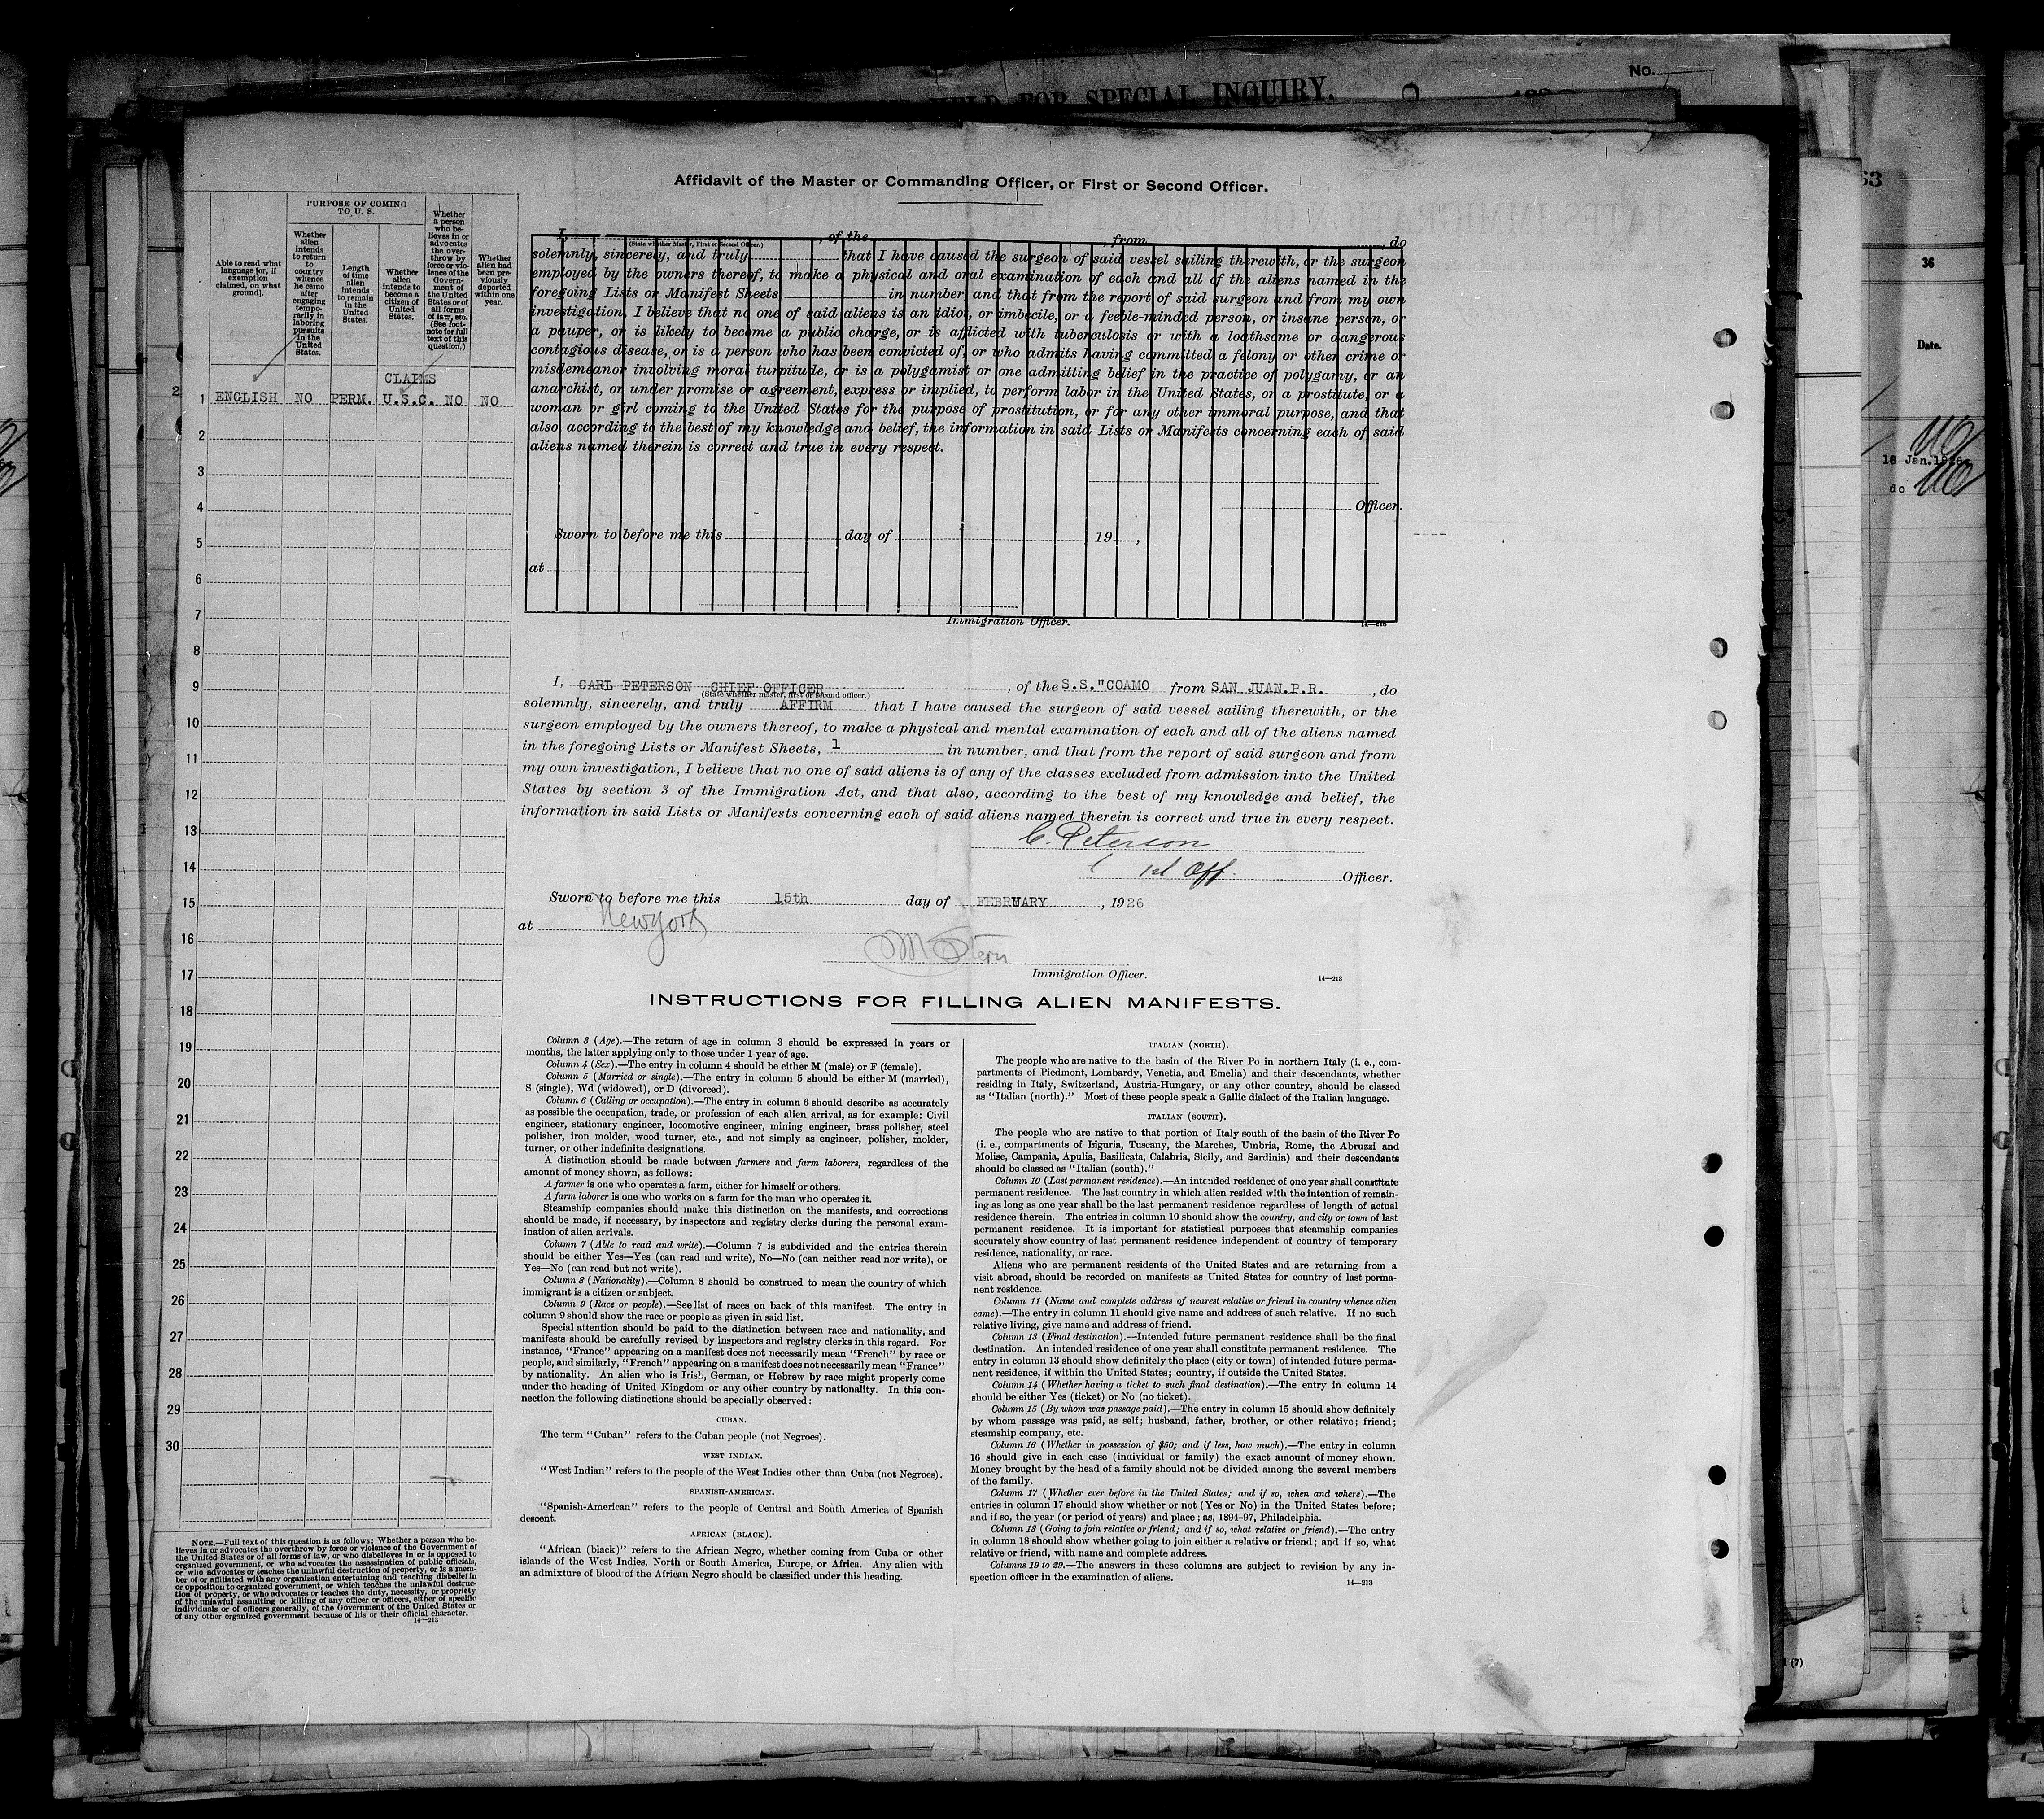 HELD FOR SPECIAL INQUIRY.
No.
Affidavit of the Master or Commanding Officer, or First or Second Officer.
Able to read what language [or, if exemption claimed, on what ground].
PURPOSE OF COMING TO U. S.
Whether alien intends to return to country whence he came after engaging temporarily in laboring pursuits in the United States.
Length of time alien intends to remain in the United States.
Whether alien intends to become a citizen of United States.
Whether a person who believes in or advocates the overthrow by force or violence of the Government of the United States or of all forms of law, etc. (See footnote for full text of this question.)
Whether alien had been previously deported within one year.
CLAIMS
1 ENGLISH NO PERM. U.S.C. NO NO
2
3
4
5
6
7
8
9
10
11
12
13
14
15
16
17
18
19
20
21
22
23
24
25
26
27
28
29
30
NOTE.—Full text of this question is as follows: Whether a person who be-
lieves in or advocates the overthrow by force or violence of the Government of
the United States or of all forms of law, or who disbelieves in or is opposed to
organized government, or who advocates the assassination of public officials,
or who advocates or teaches the unlawful destruction of property, or is a mem-
ber of or affiliated with any organization entertaining and teaching disbelief in
or opposition to organized government, or which teaches the unlawful destruc-
tion of property, or who advocates or teaches the duty, necessity, or propriety
of the unlawful assaulting or killing of any officer or officers, either of specific
individuals or of officers generally, of the Government of the United States or
of any other organized government because of his or their official character.
14—213
I, , of the , from , do
(State whether Master, First or Second Officer.)
solemnly, sincerely, and truly that I have caused the surgeon of said vessel sailing therewith, or the surgeon
employed by the owners thereof, to make a physical and oral examination of each and all of the aliens named in the
foregoing Lists or Manifest Sheets in number, and that from the report of said surgeon and from my own
investigation, I believe that no one of said aliens is an idiot, or imbecile, or a feeble-minded person, or insane person, or
a pauper, or is likely to become a public charge, or is afflicted with tuberculosis or with a loathsome or dangerous
contagious disease, or is a person who has been convicted of, or who admits having committed a felony or other crime or
misdemeanor involving moral turpitude, or is a polygamist or one admitting belief in the practice of polygamy, or an
anarchist, or under promise or agreement, express or implied, to perform labor in the United States, or a prostitute, or a
woman or girl coming to the United States for the purpose of prostitution, or for any other immoral purpose, and that
also, according to the best of my knowledge and belief, the information in said Lists or Manifests concerning each of said
aliens named therein is correct and true in every respect.
Officer.
Sworn to before me this day of 19 ,
at
Immigration Officer.
14—213
I, CARL PETERSON CHIEF OFFICER , of the S.S."COAMO from SAN JUAN.P.R. , do
(State whether master, first or second officer.)
solemnly, sincerely, and truly AFFIRM that I have caused the surgeon of said vessel sailing therewith, or the
surgeon employed by the owners thereof, to make a physical and mental examination of each and all of the aliens named
in the foregoing Lists or Manifest Sheets, 1 in number, and that from the report of said surgeon and from
my own investigation, I believe that no one of said aliens is of any of the classes excluded from admission into the United
States by section 3 of the Immigration Act, and that also, according to the best of my knowledge and belief, the
information in said Lists or Manifests concerning each of said aliens named therein is correct and true in every respect.
C. Peterson
1st Off. Officer.
Sworn to before me this 15th day of FEBRUARY , 1926
at New York
M Stern
Immigration Officer.
14—213
INSTRUCTIONS FOR FILLING ALIEN MANIFESTS.
Column 3 (Age).—The return of age in column 3 should be expressed in years or
months, the latter applying only to those under 1 year of age.
Column 4 (Sex).—The entry in column 4 should be either M (male) or F (female).
Column 5 (Married or single).—The entry in column 5 should be either M (married),
S (single), Wd (widowed), or D (divorced).
Column 6 (Calling or occupation).—The entry in column 6 should describe as accurately
as possible the occupation, trade, or profession of each alien arrival, as for example: Civil
engineer, stationary engineer, locomotive engineer, mining engineer, brass polisher, steel
polisher, iron molder, wood turner, etc., and not simply as engineer, polisher, molder,
turner, or other indefinite designations.
A distinction should be made between farmers and farm laborers, regardless of the
amount of money shown, as follows:
A farmer is one who operates a farm, either for himself or others.
A farm laborer is one who works on a farm for the man who operates it.
Steamship companies should make this distinction on the manifests, and corrections
should be made, if necessary, by inspectors and registry clerks during the personal exam-
ination of alien arrivals.
Column 7 (Able to read and write).—Column 7 is subdivided and the entries therein
should be either Yes—Yes (can read and write), No—No (can neither read nor write), or
Yes—No (can read but not write).
Column 8 (Nationality).—Column 8 should be construed to mean the country of which
immigrant is a citizen or subject.
Column 9 (Race or people).—See list of races on back of this manifest. The entry in
column 9 should show the race or people as given in said list.
Special attention should be paid to the distinction between race and nationality, and
manifests should be carefully revised by inspectors and registry clerks in this regard. For
instance, "France" appearing on a manifest does not necessarily mean "French" by race or
people, and similarly, "French" appearing on a manifest does not necessarily mean "France"
by nationality. An alien who is Irish, German, or Hebrew by race might properly come
under the heading of United Kingdom or any other country by nationality. In this con-
nection the following distinctions should be specially observed:
CUBAN.
The term "Cuban" refers to the Cuban people (not Negroes).
WEST INDIAN.
"West Indian" refers to the people of the West Indies other than Cuba (not Negroes).
SPANISH-AMERICAN.
"Spanish-American" refers to the people of Central and South America of Spanish
descent.
AFRICAN (BLACK).
"African (black)" refers to the African Negro, whether coming from Cuba or other
islands of the West Indies, North or South America, Europe, or Africa. Any alien with
an admixture of blood of the African Negro should be classified under this heading.
ITALIAN (NORTH).
The people who are native to the basin of the River Po in northern Italy (i. e., com-
partments of Piedmont, Lombardy, Venetia, and Emelia) and their descendants, whether
residing in Italy, Switzerland, Austria-Hungary, or any other country, should be classed
as "Italian (north)." Most of these people speak a Gallic dialect of the Italian language.
ITALIAN (SOUTH).
The people who are native to that portion of Italy south of the basin of the River Po
(i. e., compartments of Liguria, Tuscany, the Marches, Umbria, Rome, the Abruzzi and
Molise, Campania, Apulia, Basilicata, Calabria, Sicily, and Sardinia) and their descendants
should be classed as "Italian (south)."
Column 10 (Last permanent residence).—An intended residence of one year shall constitute
permanent residence. The last country in which alien resided with the intention of remain-
ing as long as one year shall be the last permanent residence regardless of length of actual
residence therein. The entries in column 10 should show the country, and city or town of last
permanent residence. It is important for statistical purposes that steamship companies
accurately show country of last permanent residence independent of country of temporary
residence, nationality, or race.
Aliens who are permanent residents of the United States and are returning from a
visit abroad, should be recorded on manifests as United States for country of last perma-
nent residence.
Column 11 (Name and complete address of nearest relative or friend in country whence alien
came).—The entry in column 11 should give name and address of such relative. If no such
relative living, give name and address of friend.
Column 13 (Final destination).—Intended future permanent residence shall be the final
destination. An intended residence of one year shall constitute permanent residence. The
entry in column 13 should show definitely the place (city or town) of intended future perma-
nent residence, if within the United States; country, if outside the United States.
Column 14 (Whether having a ticket to such final destination).—The entry in column 14
should be either Yes (ticket) or No (no ticket).
Column 15 (By whom was passage paid).—The entry in column 15 should show definitely
by whom passage was paid, as self; husband, father, brother, or other relative; friend;
steamship company, etc.
Column 16 (Whether in possession of $50; and if less, how much).—The entry in column
16 should give in each case (individual or family) the exact amount of money shown.
Money brought by the head of a family should not be divided among the several members
of the family.
Column 17 (Whether ever before in the United States; and if so, when and where).—The
entries in column 17 should show whether or not (Yes or No) in the United States before;
and if so, the year (or period of years) and place; as, 1894-97, Philadelphia.
Column 18 (Going to join relative or friend; and if so, what relative or friend).—The entry
in column 18 should show whether going to join either a relative or friend; and if so, what
relative or friend, with name and complete address.
Columns 19 to 29.—The answers in these columns are subject to revision by any in-
spection officer in the examination of aliens.
14—213
63
36
Date.
18 Jan.1926
do
(7)